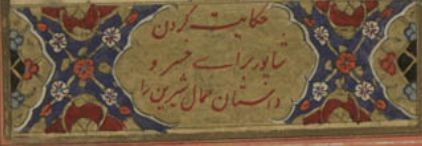 حکایت کردن
شاپور برای خسرو
داستان جمال شیرین را